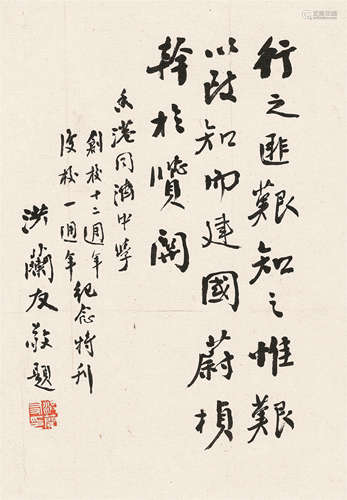 行之匪艱知之惟艱
以致知而建國蔚楨
幹於黌開
香港同濟中學
創校十二週年
復校一週年
紀念特刊
洪蘭友敬題